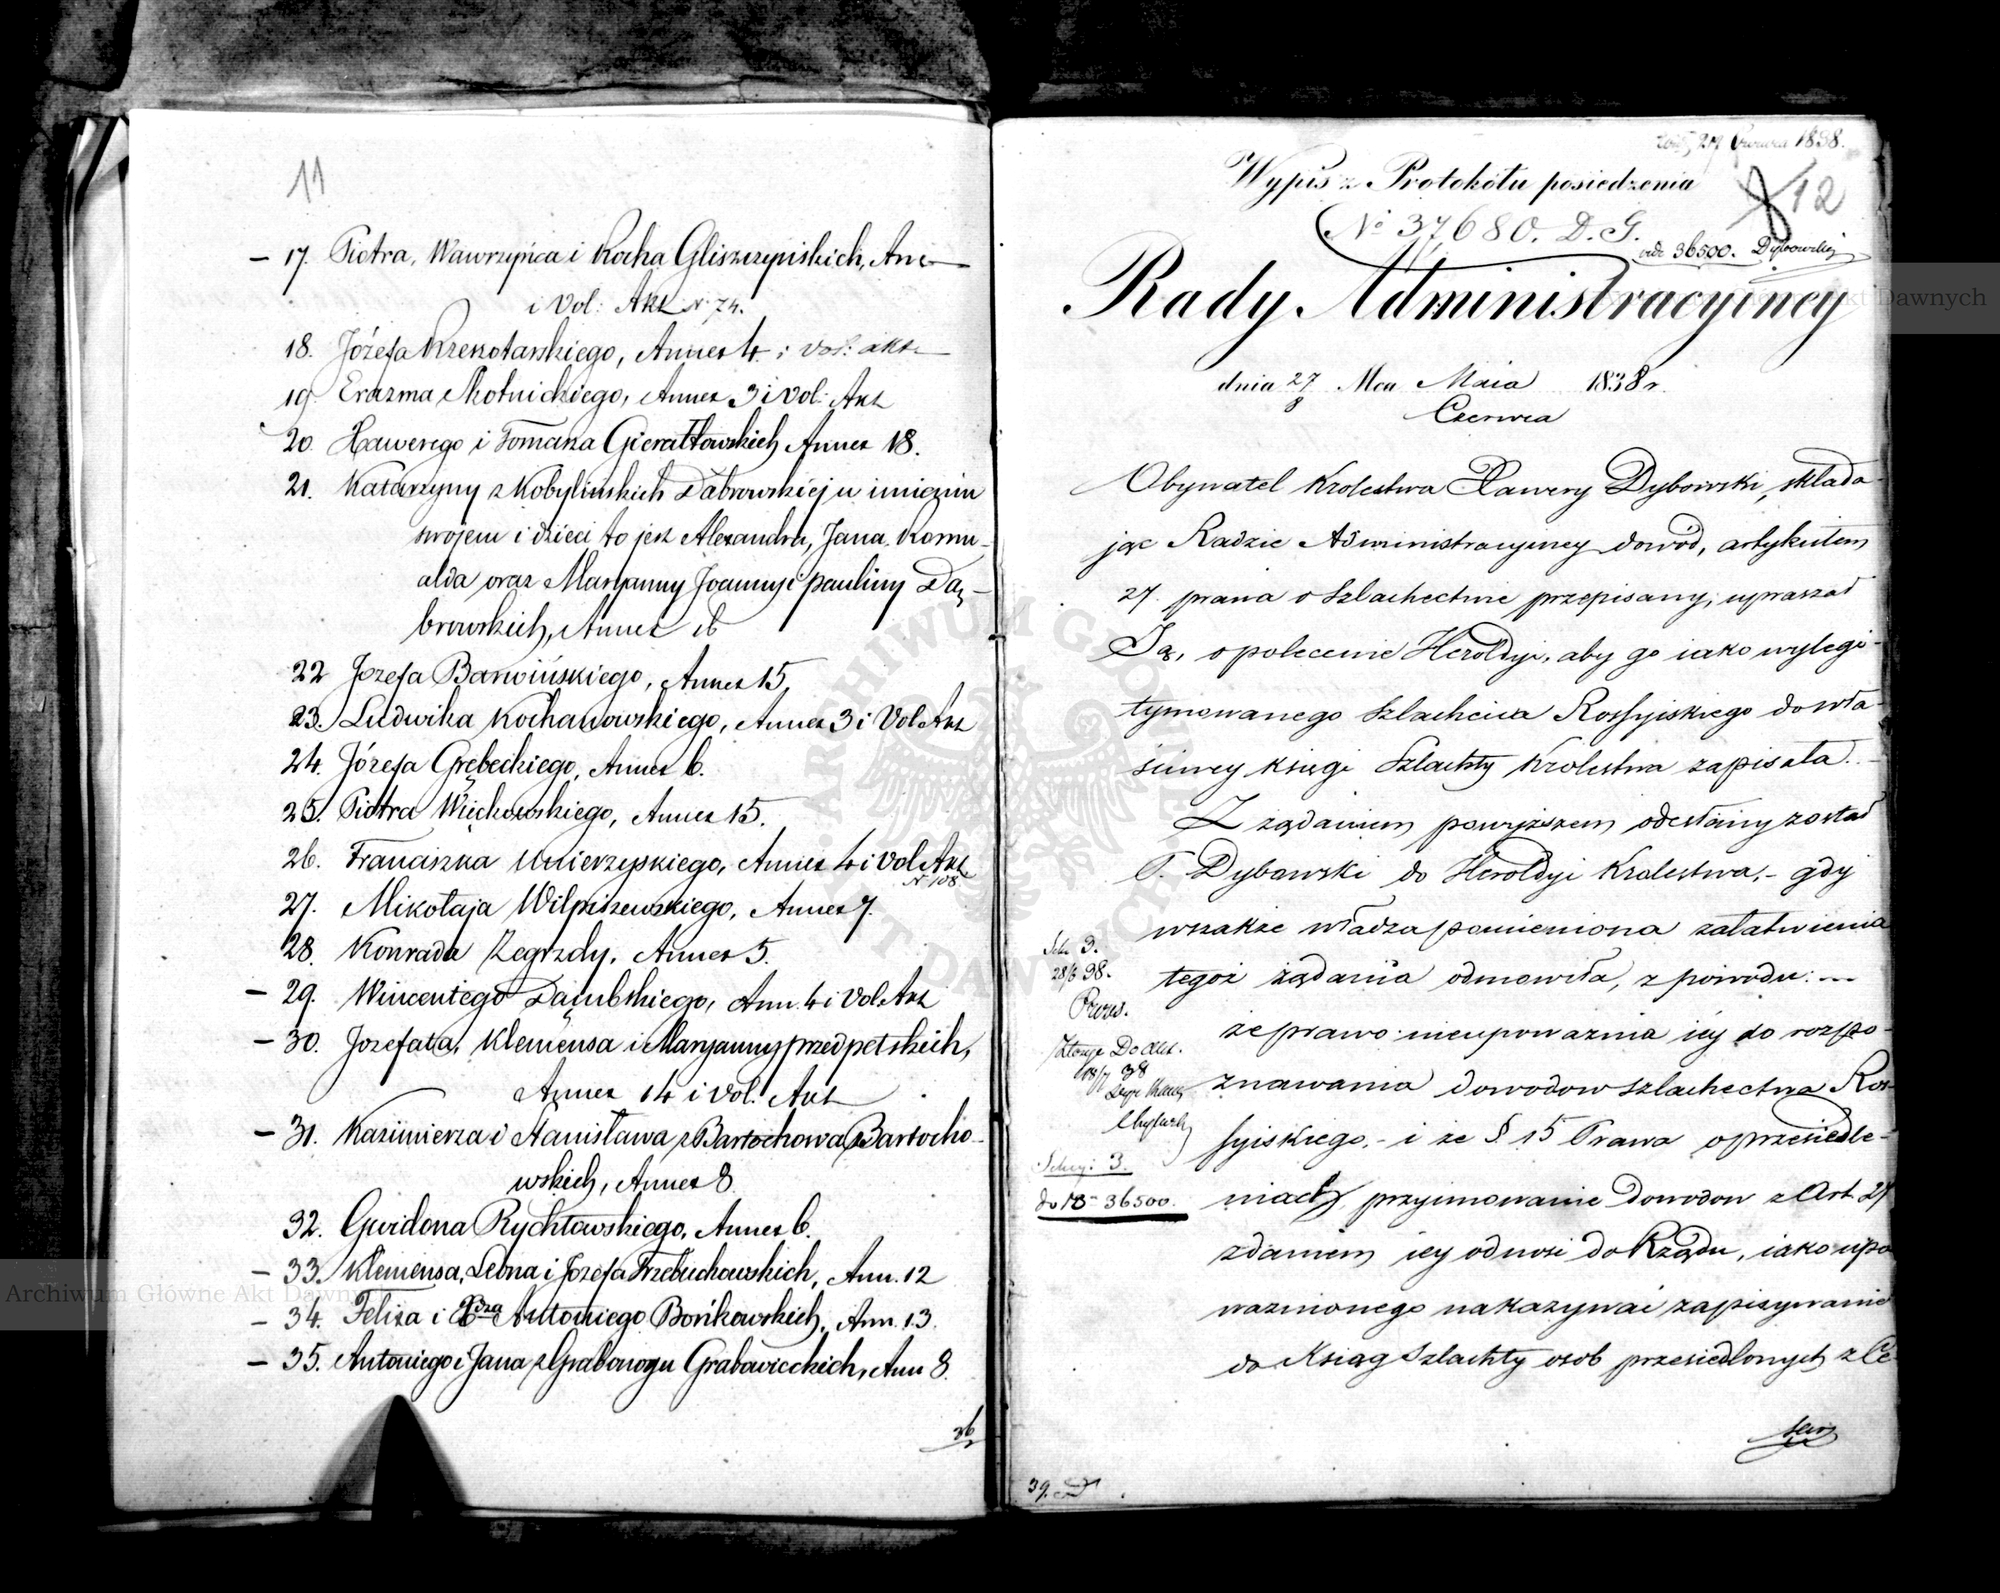 11
– 17. Piotra, Wawrzyńca i Rocha Gliszczyńskich, Ane
i Vol: Akt N. 74.
18. Józefa Krekotarskiego, Annex 4. i vol: akt
19. Erazma Motnickiego, Annex 3 i Vol: Akt
20. Xawerego i Tomasza Gierałtowskich Annex 18.
21. Katarzyny z Kobylińskich Dąbrowskiej w imieniu
swojem i dzieci to jest Alexandra, Jana, Romu-
alda oraz Maryanny Joanny i pauliny Dą-
browskich, Annex 16
22 Jozefa Barwińskiego, Annex 15
23. Ludwika Kochanowskiego, Annex 3 i Vol Akt
24. Józefa Grębeckiego, Annex 6.
25. Piotra Więckowskiego, Annex 15.
26. Franciszka Umierzyskiego, Annex 4 i Vol Akt
N. 108
27. Mikołaja Wilpiszewskiego, Annex 7.
28. Konrada Zegrzdy, Annex 5.
– 29. Wincentego Dąmbskiego, Ann. 4 i Vol. Akt
– 30. Jozefata, Klemensa i Maryanny przedpetskich,
Annex 14 i Vol. Akt
– 31. Kazimierza i Stanisława z Bartochowa Bartocho-
wskich, Annex 8
32. Gwidona Rychłowskiego, Annex 6.
– 33. Klemensa, Leona i Jozefa Trzebuchowskich, Ann. 12
– 34. Felixa i Antoniego Bońkowskich, Ann. 13.
– 35. Antoniego i Jana z Grabonogu Grabowieckich, Ann 8.
36
27 Czerwca 1838.
Wypis z Protokółu posiedzenia
12
No 37680. D. G.
vide 36500. Dybowskiej
Rady Administracyiney
dnia 27/8 Mca Maia 1838 r.
Czerwca
Obywatel Krolestwa Xawery Dybowski, składa-
jąc Radzie Administracyiney dowód, artykułem
27. prawa o Szlachectwie przepisany, upraszał
Ją, o polecenie Heroldyi, aby go iako wylegi-
tymowanego Szlachcica Rossyiskiego do wła-
ściwey księgi Szlachty Krolestwa zapisała.
Z żądaniem powyższem odesłany został
P. Dybowski do Heroldyi Krolestwa, – gdy
wszakże władza pomieniona załatwienia
tegoż żądania odmowiła, z powodu: –
że prawo nieupoważnia iey do rozpo-
znawania dowodow szlachectwa Ros-
syiskiego, – i że § 15 Prawa o przesiedle-
niach, przyimowanie Dowodow z Art. 27
zdaniem iey odnosi do Rządu, iako upo
ważnionego nakazywać zapisywanie
do Ksiąg Szlachty osob przesiedlonych z Ce-
28/6 38.
Prezes.
Sekcyi 3.
do No 36500.
39.
Archiwum Główne Akt Dawnych
Akt Dawnych
ARCHIWUM GŁÓWNE AKT DAWNYCH